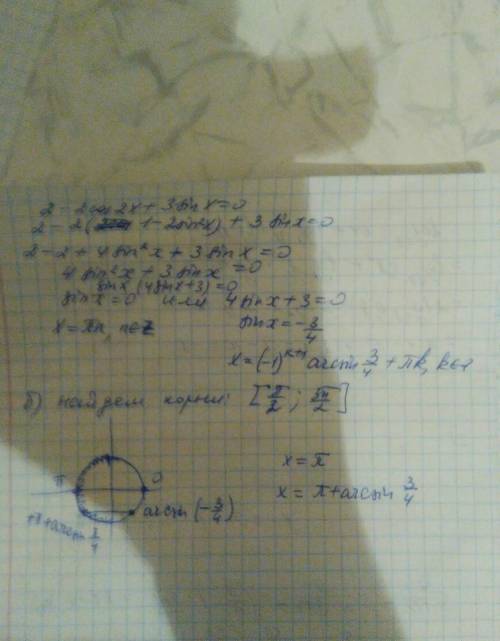 2 - 2cos2x + 3sinx = 0
2 - 2(1 - 2sin²x) + 3sinx = 0
2 - 2 + 4sin²x + 3sinx = 0
4sin²x + 3sinx = 0
sinx(4sinx+3) = 0
sinx = 0 или 4sinx + 3 = 0
x = πn, n∈Z sinx = -3/4
x = (-1)^{k+1} arcsin 3/4 + πk, k∈z
б) найдем корни: [π/2;
x = π
π 0
x = π + arcsin 3/4
arcsin(-3/4)
π + arcsin 3/4